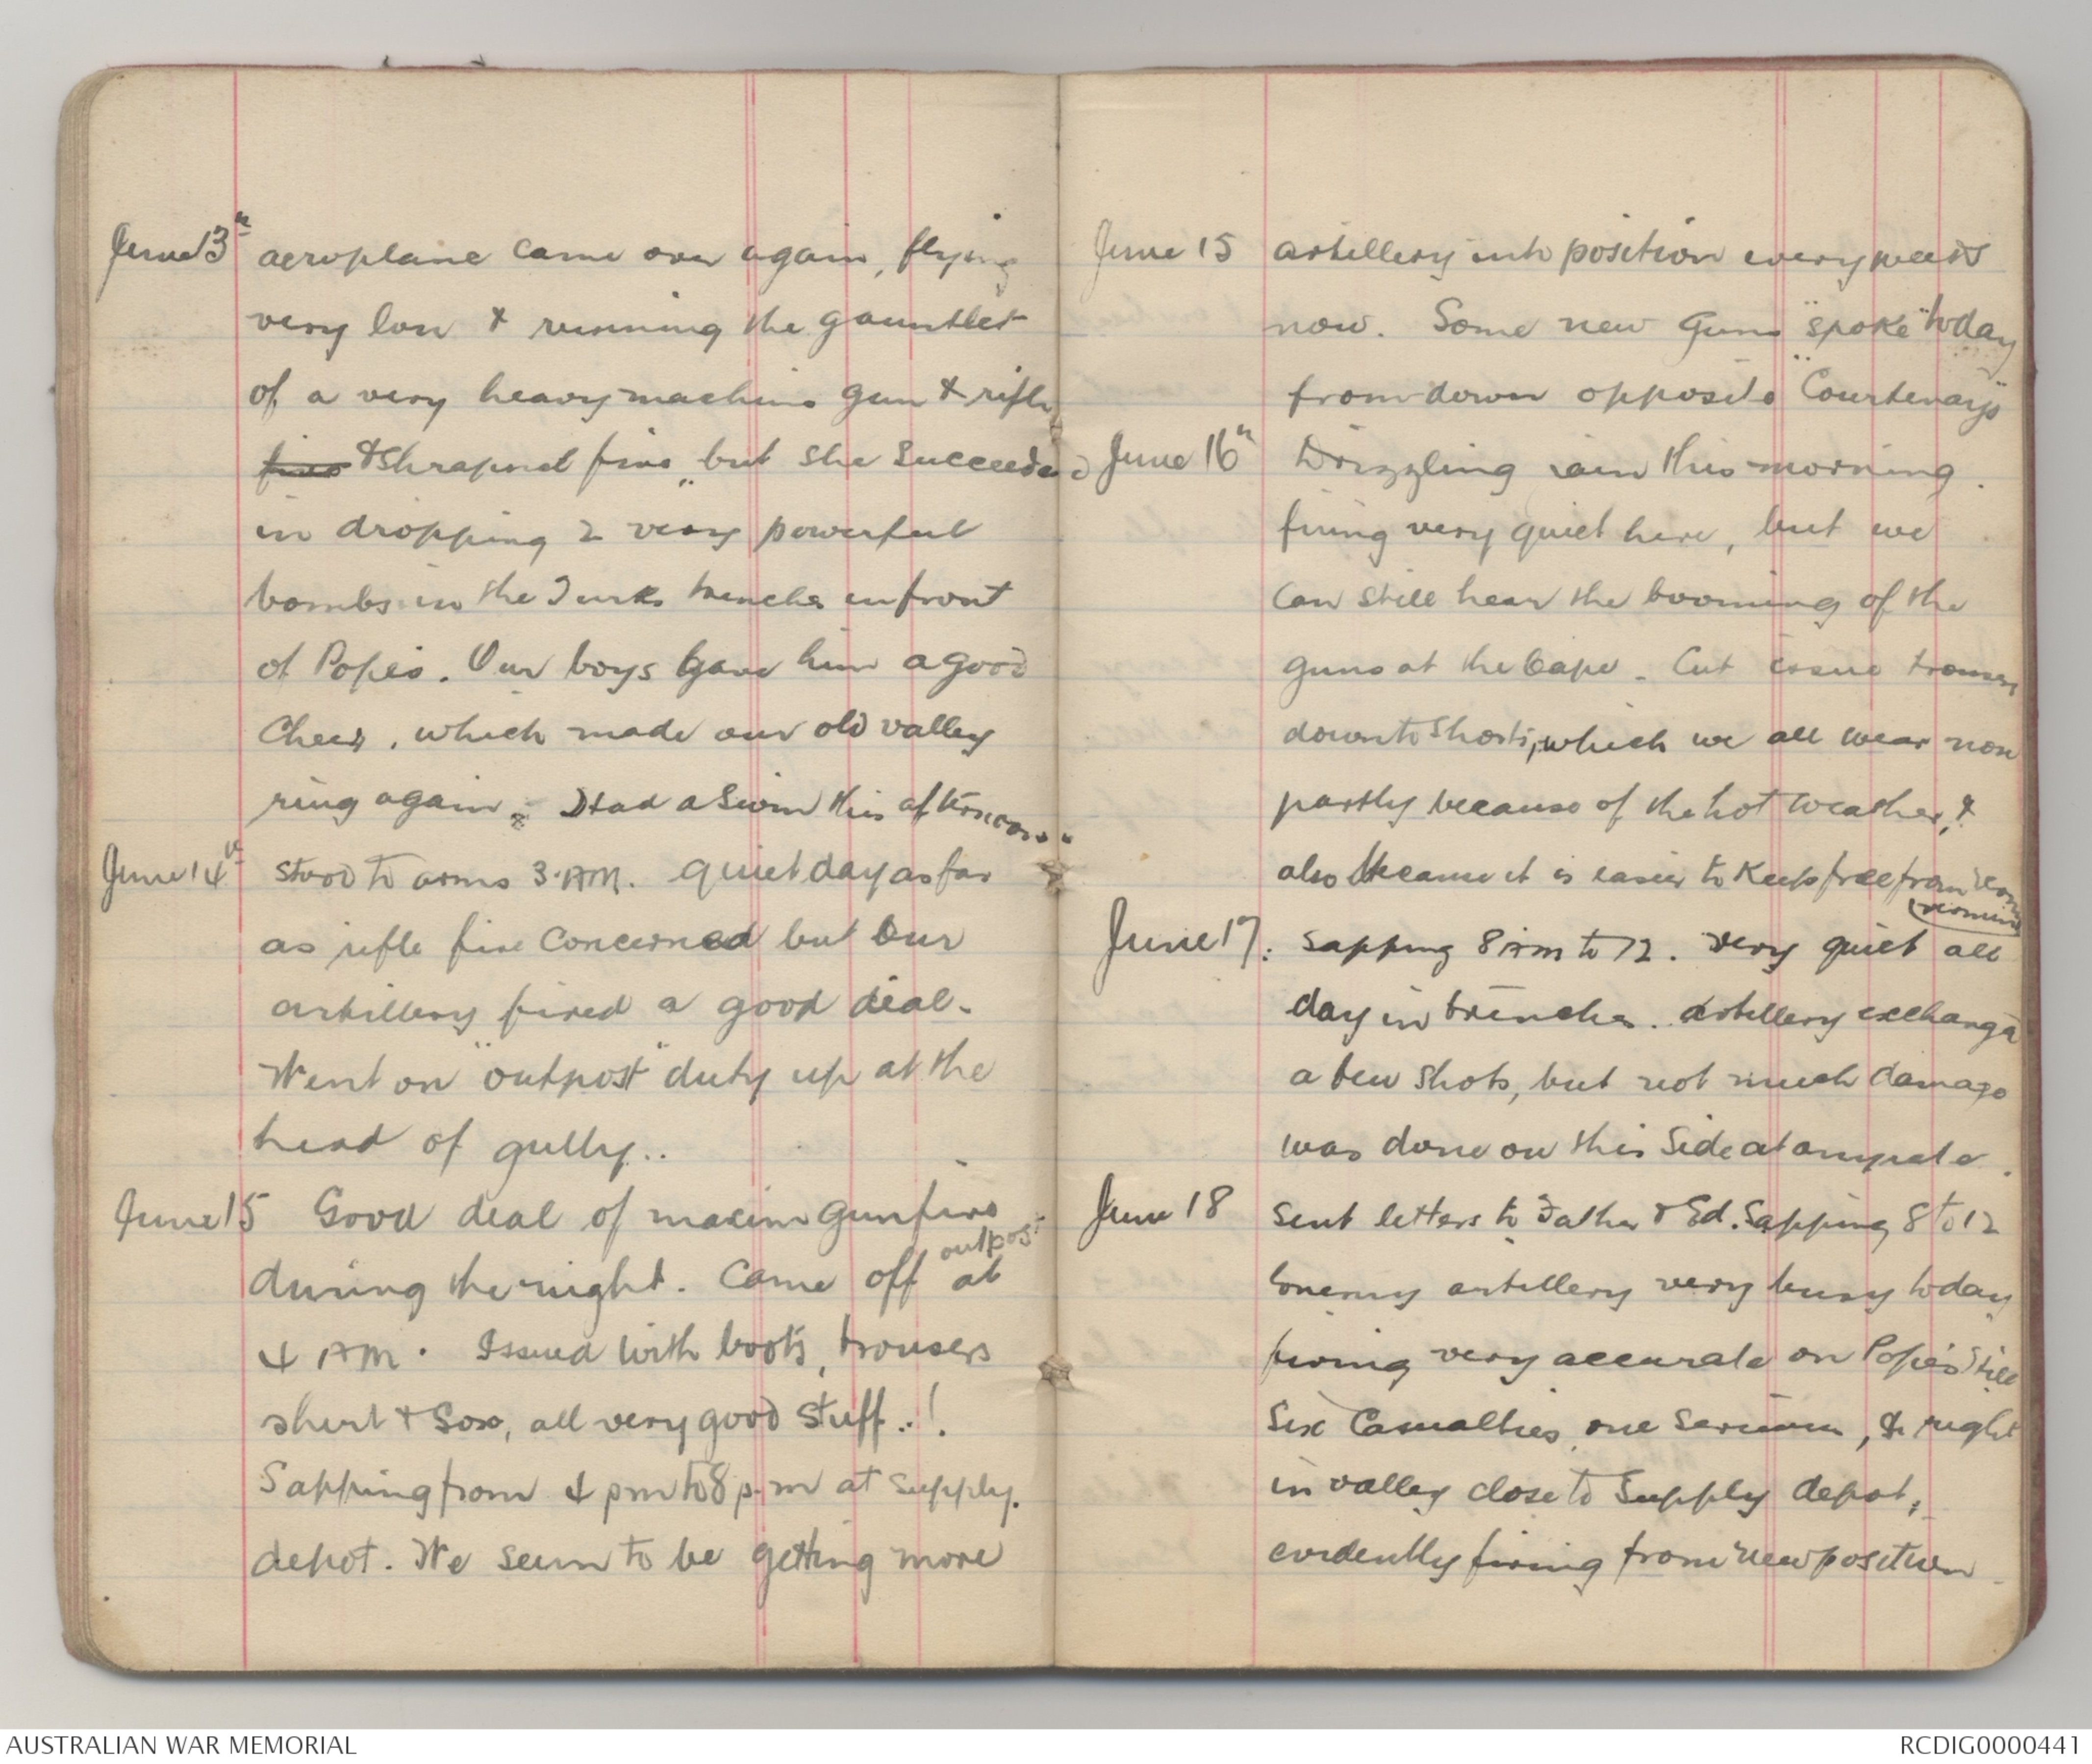 June 13th aeroplane came over again, flying
very low & running the gauntlet
of a very heavy machine gun & rifle
fire & shrapnel fire, but she succeeded
in dropping 2 very powerful
bombs in the Turks trenches in front
of Popes. Our boys gave him a good
Cheer, which made our old valley
ring again. Had a swim this afternoon
June 14th stood to arms 3.AM. quiet day as far
as rifle fire concerned but our
artillery fired a good deal.
Went on "outpost" duty up at the
head of gully..
June 15 Good deal of maxim gun fire
during the night. Came off outpost at
4 AM. Issued with boots, trousers
shirt & Sox, all very good stuff..!
Sapping from 4 pm to 8 p.m at supply.
depot. We seem to be getting more
June 15 artillery into position every week
now. Some new Guns "spoke" today
from down opposite "Courtenays"
June 16th Drizzling rain this morning.
firing very quiet here, but we
can still hear the booming of the
guns at the Cape. Cut issue trousers
down to shorts, which we all wear now
partly because of the hot weather, &
also because it is easier to keep free from
vermin
June 17: Sapping 8 AM to 12. Very quiet all
day in trenches. Artillery exchanged
a few shots, but not much damage
was done on this side at anyrate.
June 18 Sent letters to Father & Ed. Sapping 8 to 12
Enemy artillery very busy today
firing very accurate on Pope's Hill
Six Casualties, one serious, & right
in valley close to Supply depot,
evidently firing from new position
AUSTRALIAN WAR MEMORIAL
RCDIG0000441